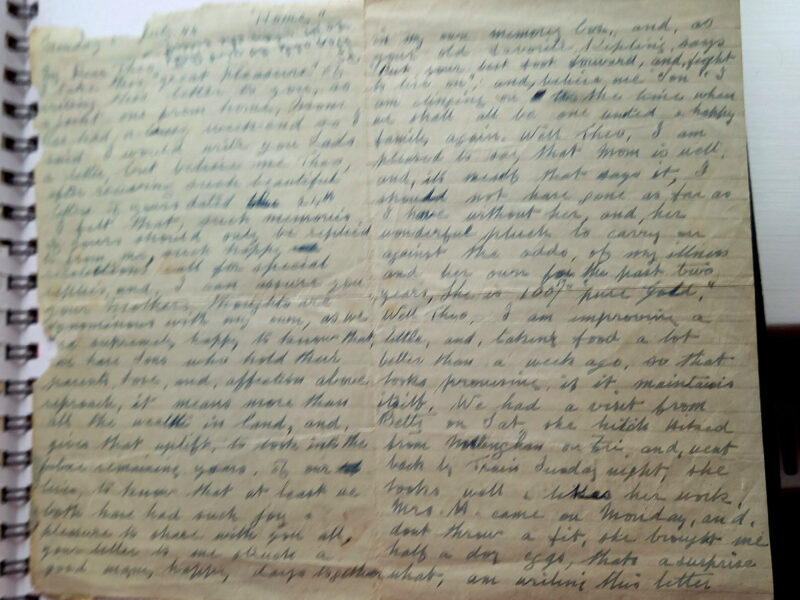 "Home"
Tuesday July 44
My Dear Theo,
I take this great pleasure in
writing this letter to you, as
joint one from home, Mom
has had a busy week and so I
said I would write you Lads
a letter, but believe me Theo,
after receiving such beautiful
letters of yours dated 24th
I felt that, such memories
of yours should only be replied
to from me, such happy
recollections, call for special
replies, and, I can assure you,
your Mothers thoughts are
synonimous with my own, as we
are extremely happy, to know that,
we have Sons who hold their
parents love, and, affection above
reproach, it means more than
all the wealth in land, and,
gives that uplift, to look into the
future remaining years, of our
lives, to know that at least we
both have had such joy &
pleasure to share with you all,
your letter to me a
good many, happy, days together
in my own memory box, and, as
your old favorite Kipling, says
"Put your best foot forward, and, fight
to live on", and, believe me "Son" I
am clinging on to the time when
we shall all be one united, & happy
family again. Well Theo, I am
pleased to say, that Mom is well,
and, its myself that says it, I
should not have gone as far as
I have without her, and, her
wonderful pluck to carry on
against the odds, of my illness
and her own for the past two
years, She is 100% "pure Gold."
Well Theo, I am improving a
little, and, taking food a lot
better than a week ago, so that
looks promising, if it maintains
itself. We had a visit from
Betty on Sat, she hitch hiked
from on Fri, and, went
back by Train Sunday night, she
looks well & likes her work,
Mrs M. came on Monday, and,
dont throw a fit, she brought me
half a doz eggs, thats a surprise
what, am writing this letter